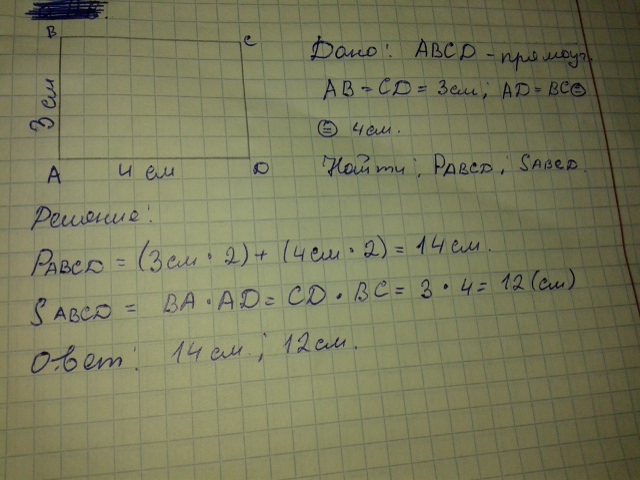 B
C
3 см
A
4 см
D
Дано: ABCD - прямоуг.
AB = CD = 3см; AD = BC =
= 4см.
Найти: PABCD; SABCD.
Решение:
PABCD = (3см · 2) + (4см · 2) = 14 см.
SABCD = BA · AD = CD · BC = 3 · 4 = 12 (см)
Ответ: 14 см; 12 см.